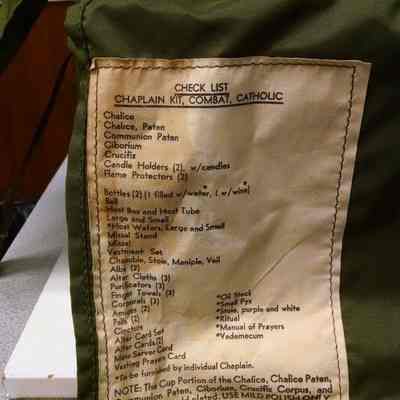 CHECK LIST
CHAPLAIN KIT, COMBAT, CATHOLIC
Chalice
Chalice, Paten
Communion Paten
Ciborium
Crucifix
Candle Holders (2), w/candles
Flame Protectors (2)
Bottles (2) (1 filled w/water*, 1 w/wine*)
Bell
Host Box and Host Tube
Large and Small
*Host Wafers, Large and Small
Missal Stand
Missal
Vestment Set
Chasuble, Stole, Maniple, Veil
Albs (2)
Altar Cloths (3)
Purificators (3)
Finger Towels (3)
Corporals (3)
Amices (2)
Palls (2)
Cincture
Altar Card Set
Altar Cards(3)
Mass Server Card
Vesting Prayer Card
*Oil Stock
*Small Pyx
*Stole, purple and white
*Ritual
*Manual of Prayers
*Vademecum
*To be furnished by individual Chaplain.
NOTE: The Cup Portion of the Chalice, Chalice Paten,
Communion Paten, Ciborium, Crucifix Corpus, and
plated. USE MILD POLISH ONLY